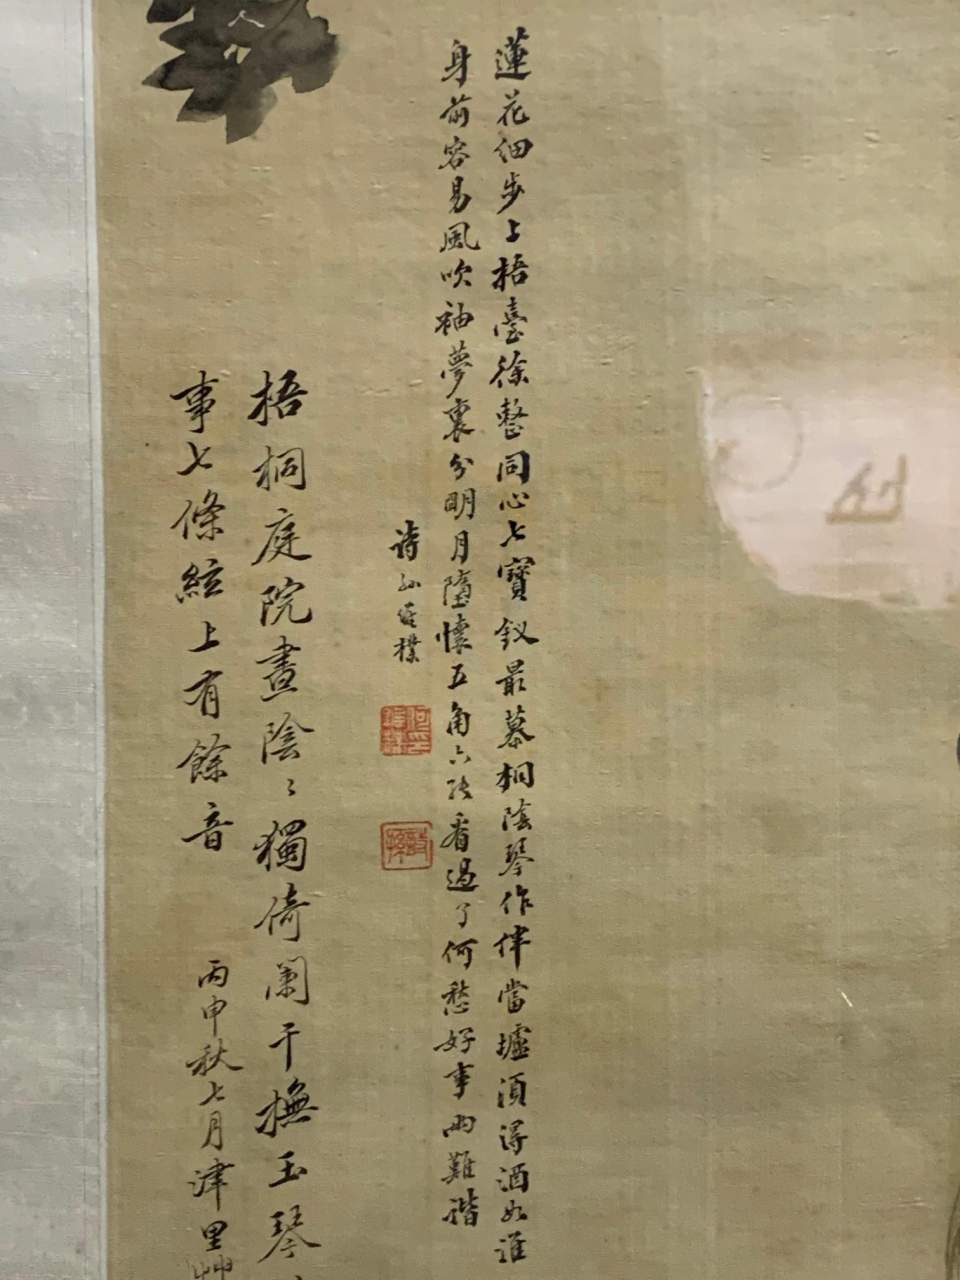 蓮花細步上梧臺徐整同心七寶釵最慕桐陰琴作伴當壚須得酒如淮
身前容易風吹袖夢裏分明月墮懷五角六張看過了何愁好事兩難諧
詩孫 樸
梧桐庭院晝陰〻獨倚闌干撫玉琴
事七條絃上有餘音
丙申秋七月津里